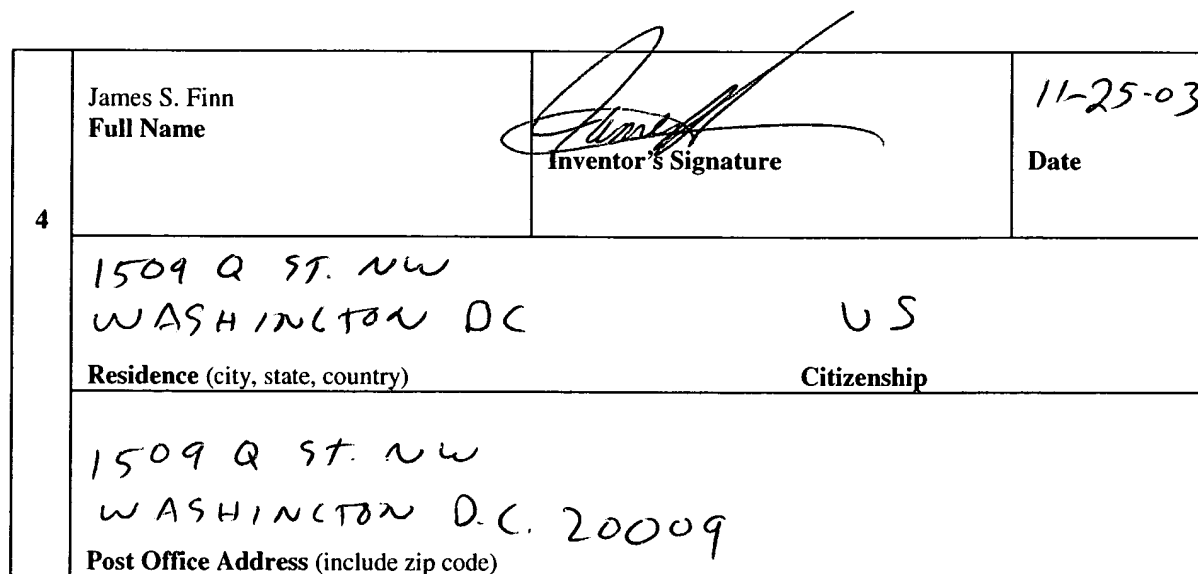 James S. Finn
Full Name
James
Inventor's Signature
11-25-03
Date
4
1509 Q ST. NW
WASHINGTON DC
US
Residence (city, state, country)
Citizenship
1509 Q ST. NW
WASHINGTON D.C. 20009
Post Office Address (include zip code)